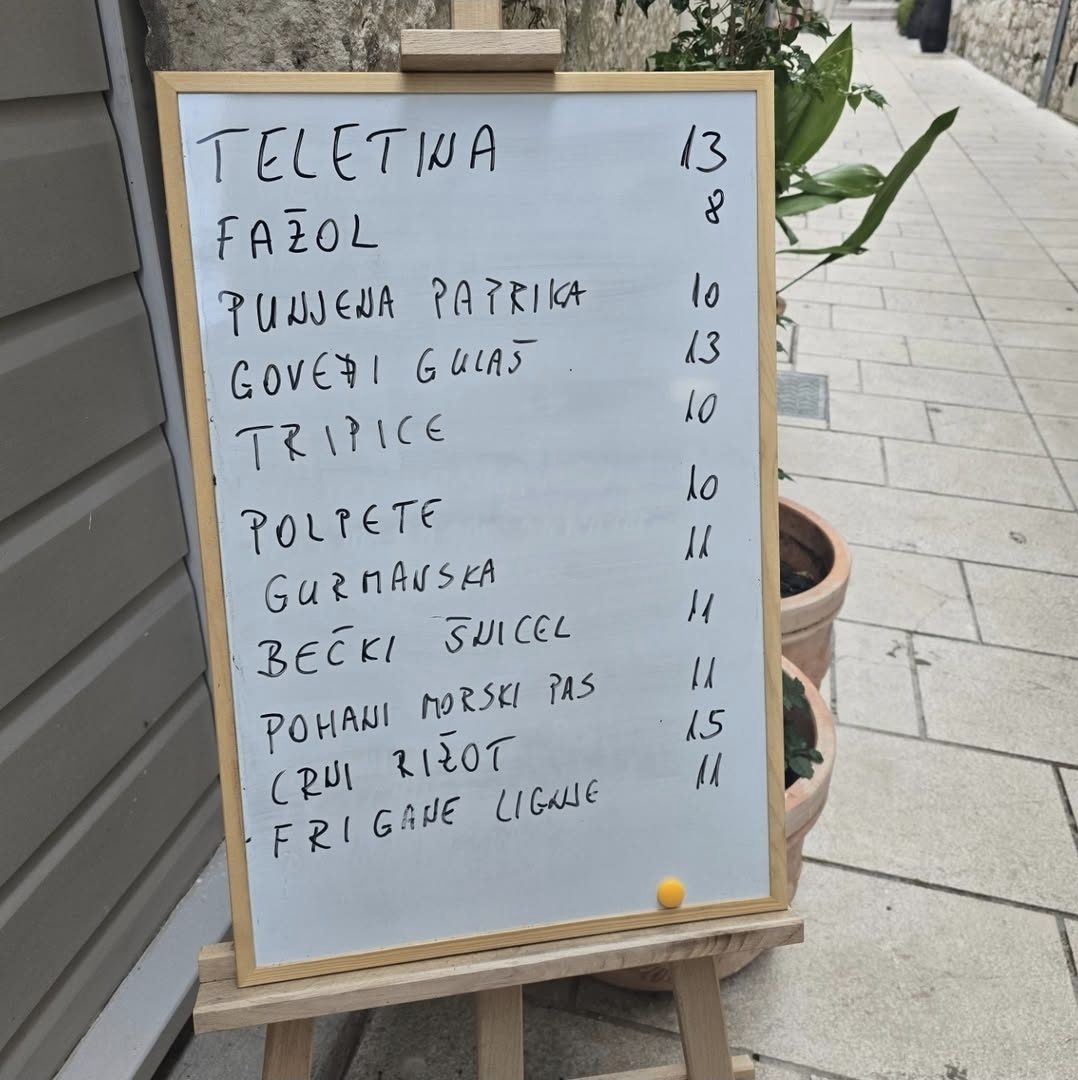 TELETINA 13
FAŽOL 8
PUNJENA PAPRIKA 10
GOVEĐI GULAŠ 13
TRIPICE 10
POLPETE 10
GURMANSKA 11
BEČKI ŠNICEL 11
POHANI MORSKI PAS 11
CRNI RIŽOT 15
FRIGANE LIGNJE 11